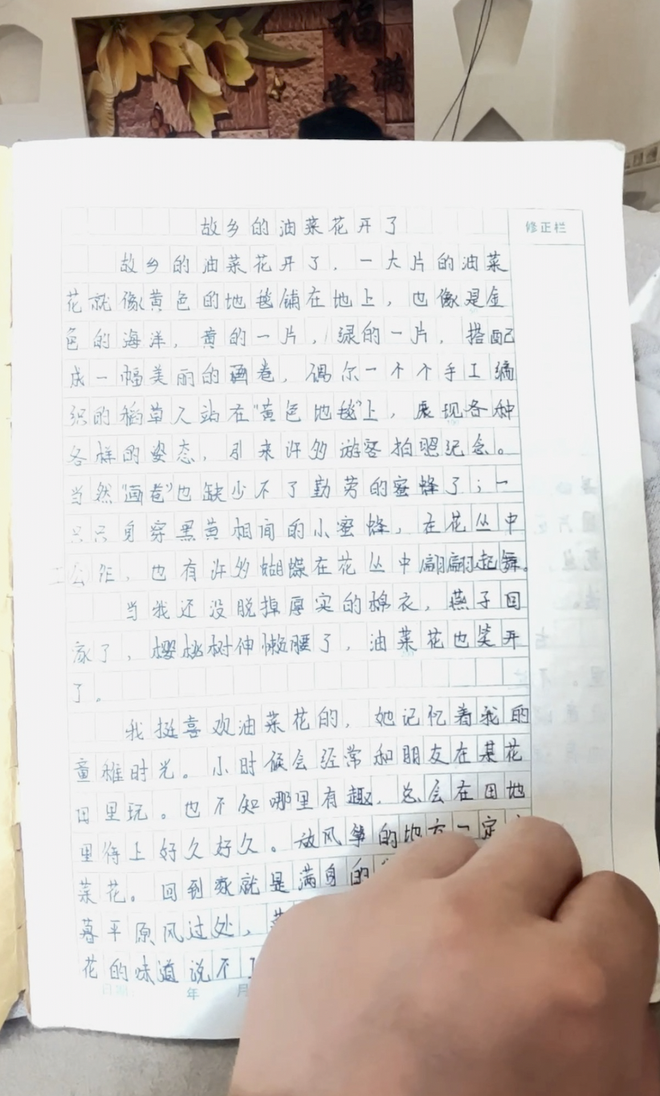 福
满
堂
修正栏
故乡的油菜花开了
故乡的油菜花开了，一大片的油菜
花就像黄色的地毯铺在地上，也像是金
色的海洋，黄的一片，绿的一片，搭配
成一幅美丽的画卷，偶尔一个个手工编
织的稻草人站在"黄色地毯"上，展现各种
各样的姿态，引来许多游客拍照纪念。
当然"画卷"也缺少不了勤劳的蜜蜂了；一
只只身穿黑黄相间的小蜜蜂，在花丛中
工作，也有许多蝴蝶在花丛中翩翩起舞。
当我还没脱掉厚实的棉衣，燕子回
家了，樱桃树伸懒腰了，油菜花也笑开
了。
我挺喜欢油菜花的，她记忆着我的
童稚时光。小时候会经常和朋友在菜花
田里玩。也不知哪里有趣，总会在田地
里待上好久好久。放风筝的地方一定
菜花。回到家就是满身的
暮平原风过处，
花的味道说不
年 月